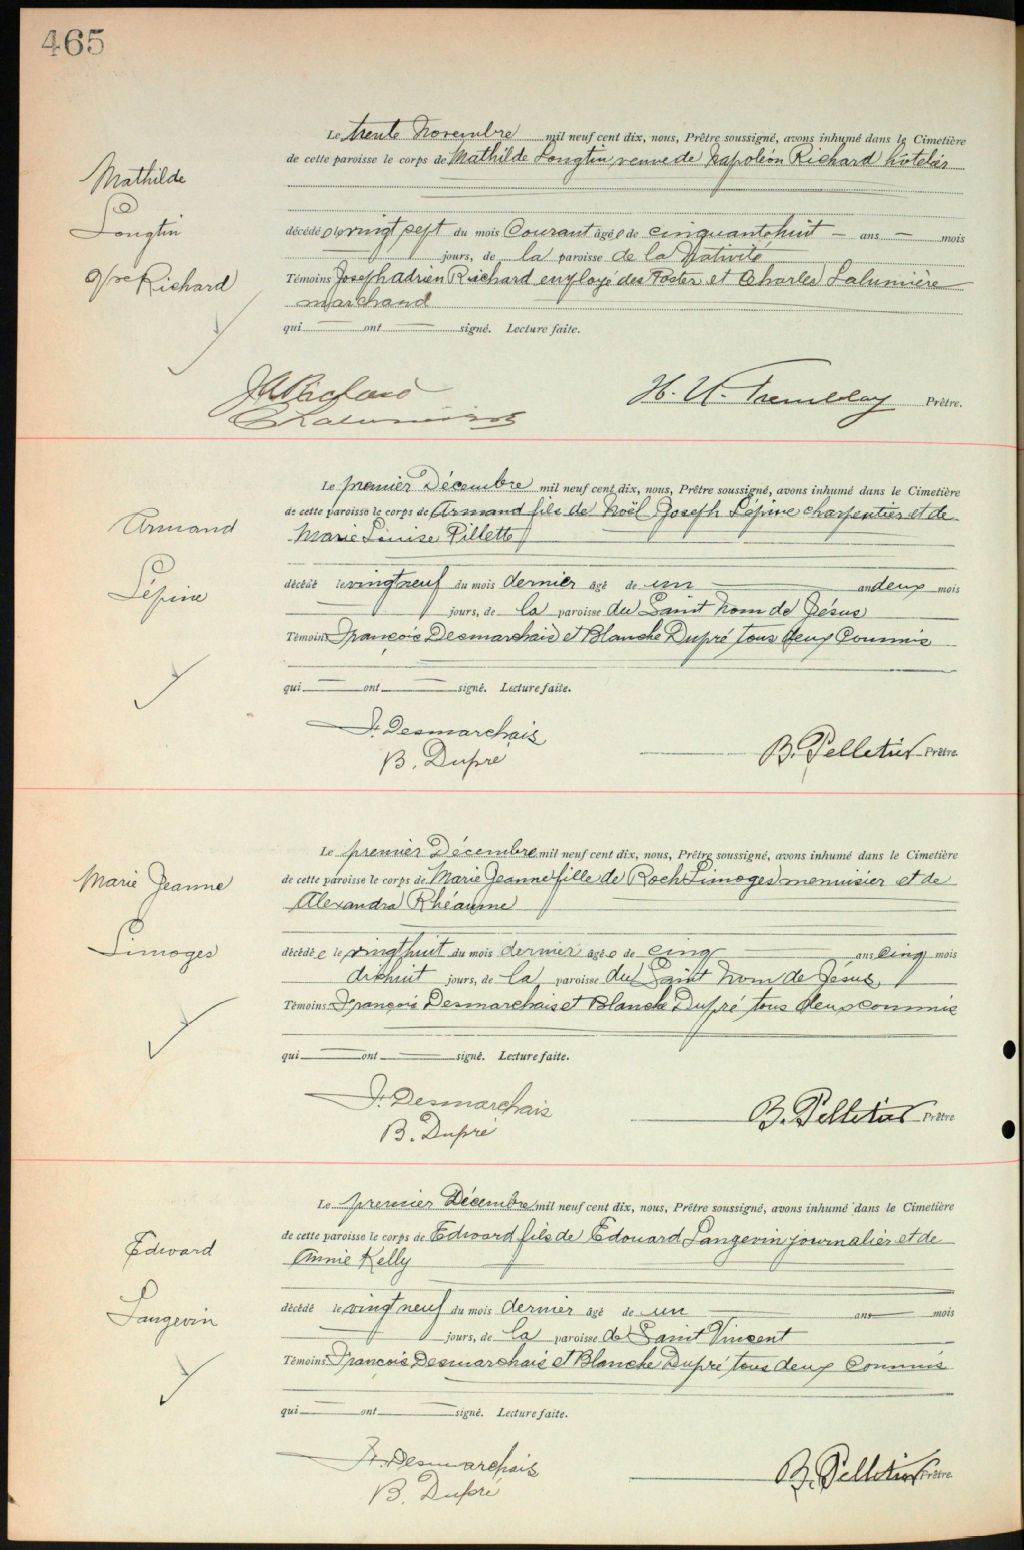 465
Le trente Novembre mil neuf cent dix, nous, Prêtre soussigné, avons inhumé dans le Cimetière
de cette paroisse le corps de Mathilde Longtin veuve de Napoléon Richard hôtelier
Mathilde
Longtin
Vve Richard
décédée le vingt sept du mois Courant âgée de cinquante huit — ans — mois
jours, de la paroisse de la Nativité
Témoins Joseph Adrien Richard employé des Postes et Charles Lalumière
marchand
qui — ont — signé. Lecture faite.
J A Richard
C Lalumière
H. U. Tremblay Prêtre.
Le premier Décembre mil neuf cent dix, nous, Prêtre soussigné, avons inhumé dans le Cimetière
de cette paroisse le corps de Armand fils de Noël Joseph Lépine charpentier et de
Marie Louise Pillette
Armand
Lépine
décédé le vingt neuf du mois dernier âgé de un — an deux mois
— jours, de la paroisse du Saint Nom de Jésus
Témoins François Desmarchais et Blanche Dupré tous deux Commis
qui — ont — signé. Lecture faite.
F. Desmarchais
B. Dupré
B. Pelletier Prêtre.
Le premier Décembre mil neuf cent dix, nous, Prêtre soussigné, avons inhumé dans le Cimetière
de cette paroisse le corps de Marie Jeanne fille de Roch Limoges menuisier et de
Alexandra Rhéaume
Marie Jeanne
Limoges
décédée le vingt huit du mois dernier âgée de cinq — ans cinq mois
dixhuit jours, de la paroisse du Saint Nom de Jésus
Témoins François Desmarchais et Blanche Dupré tous deux commis
qui — ont — signé. Lecture faite.
F. Desmarchais
B. Dupré
B. Pelletier Prêtre
Le premier Décembre mil neuf cent dix, nous, Prêtre soussigné, avons inhumé dans le Cimetière
de cette paroisse le corps de Edward fils de Edouard Langevin journalier et de
Annie Kelly
Edward
Langevin
décédé le vingt neuf du mois dernier âgé de un — ans — mois
— jours, de la paroisse de Saint Vincent
Témoins François Desmarchais et Blanche Dupré tous deux Commis
qui — ont — signé. Lecture faite.
F. Desmarchais
B. Dupré
B. Pelletier Prêtre.